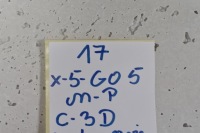 17
x-5-GO5
m-P
C-3D